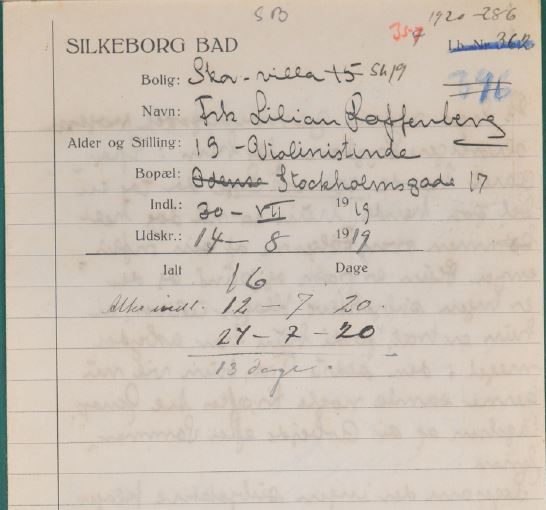 SB
1920-286
354
SILKEBORG BAD
Lb. Nr. 362
396
Bolig: Skov-villa 15 Sk/9
Navn: Frk Lilian Raffenberg
Alder og Stilling: 19 - Violinistinde
Bopæl: Odense Stockholmsgade 17
Indl.: 30 - VII 1919
Udskr.: 14 - 8 1919
Ialt 16 Dage
Atter indl. 12 - 7 20.
24 - 7 - 20
13 dage.